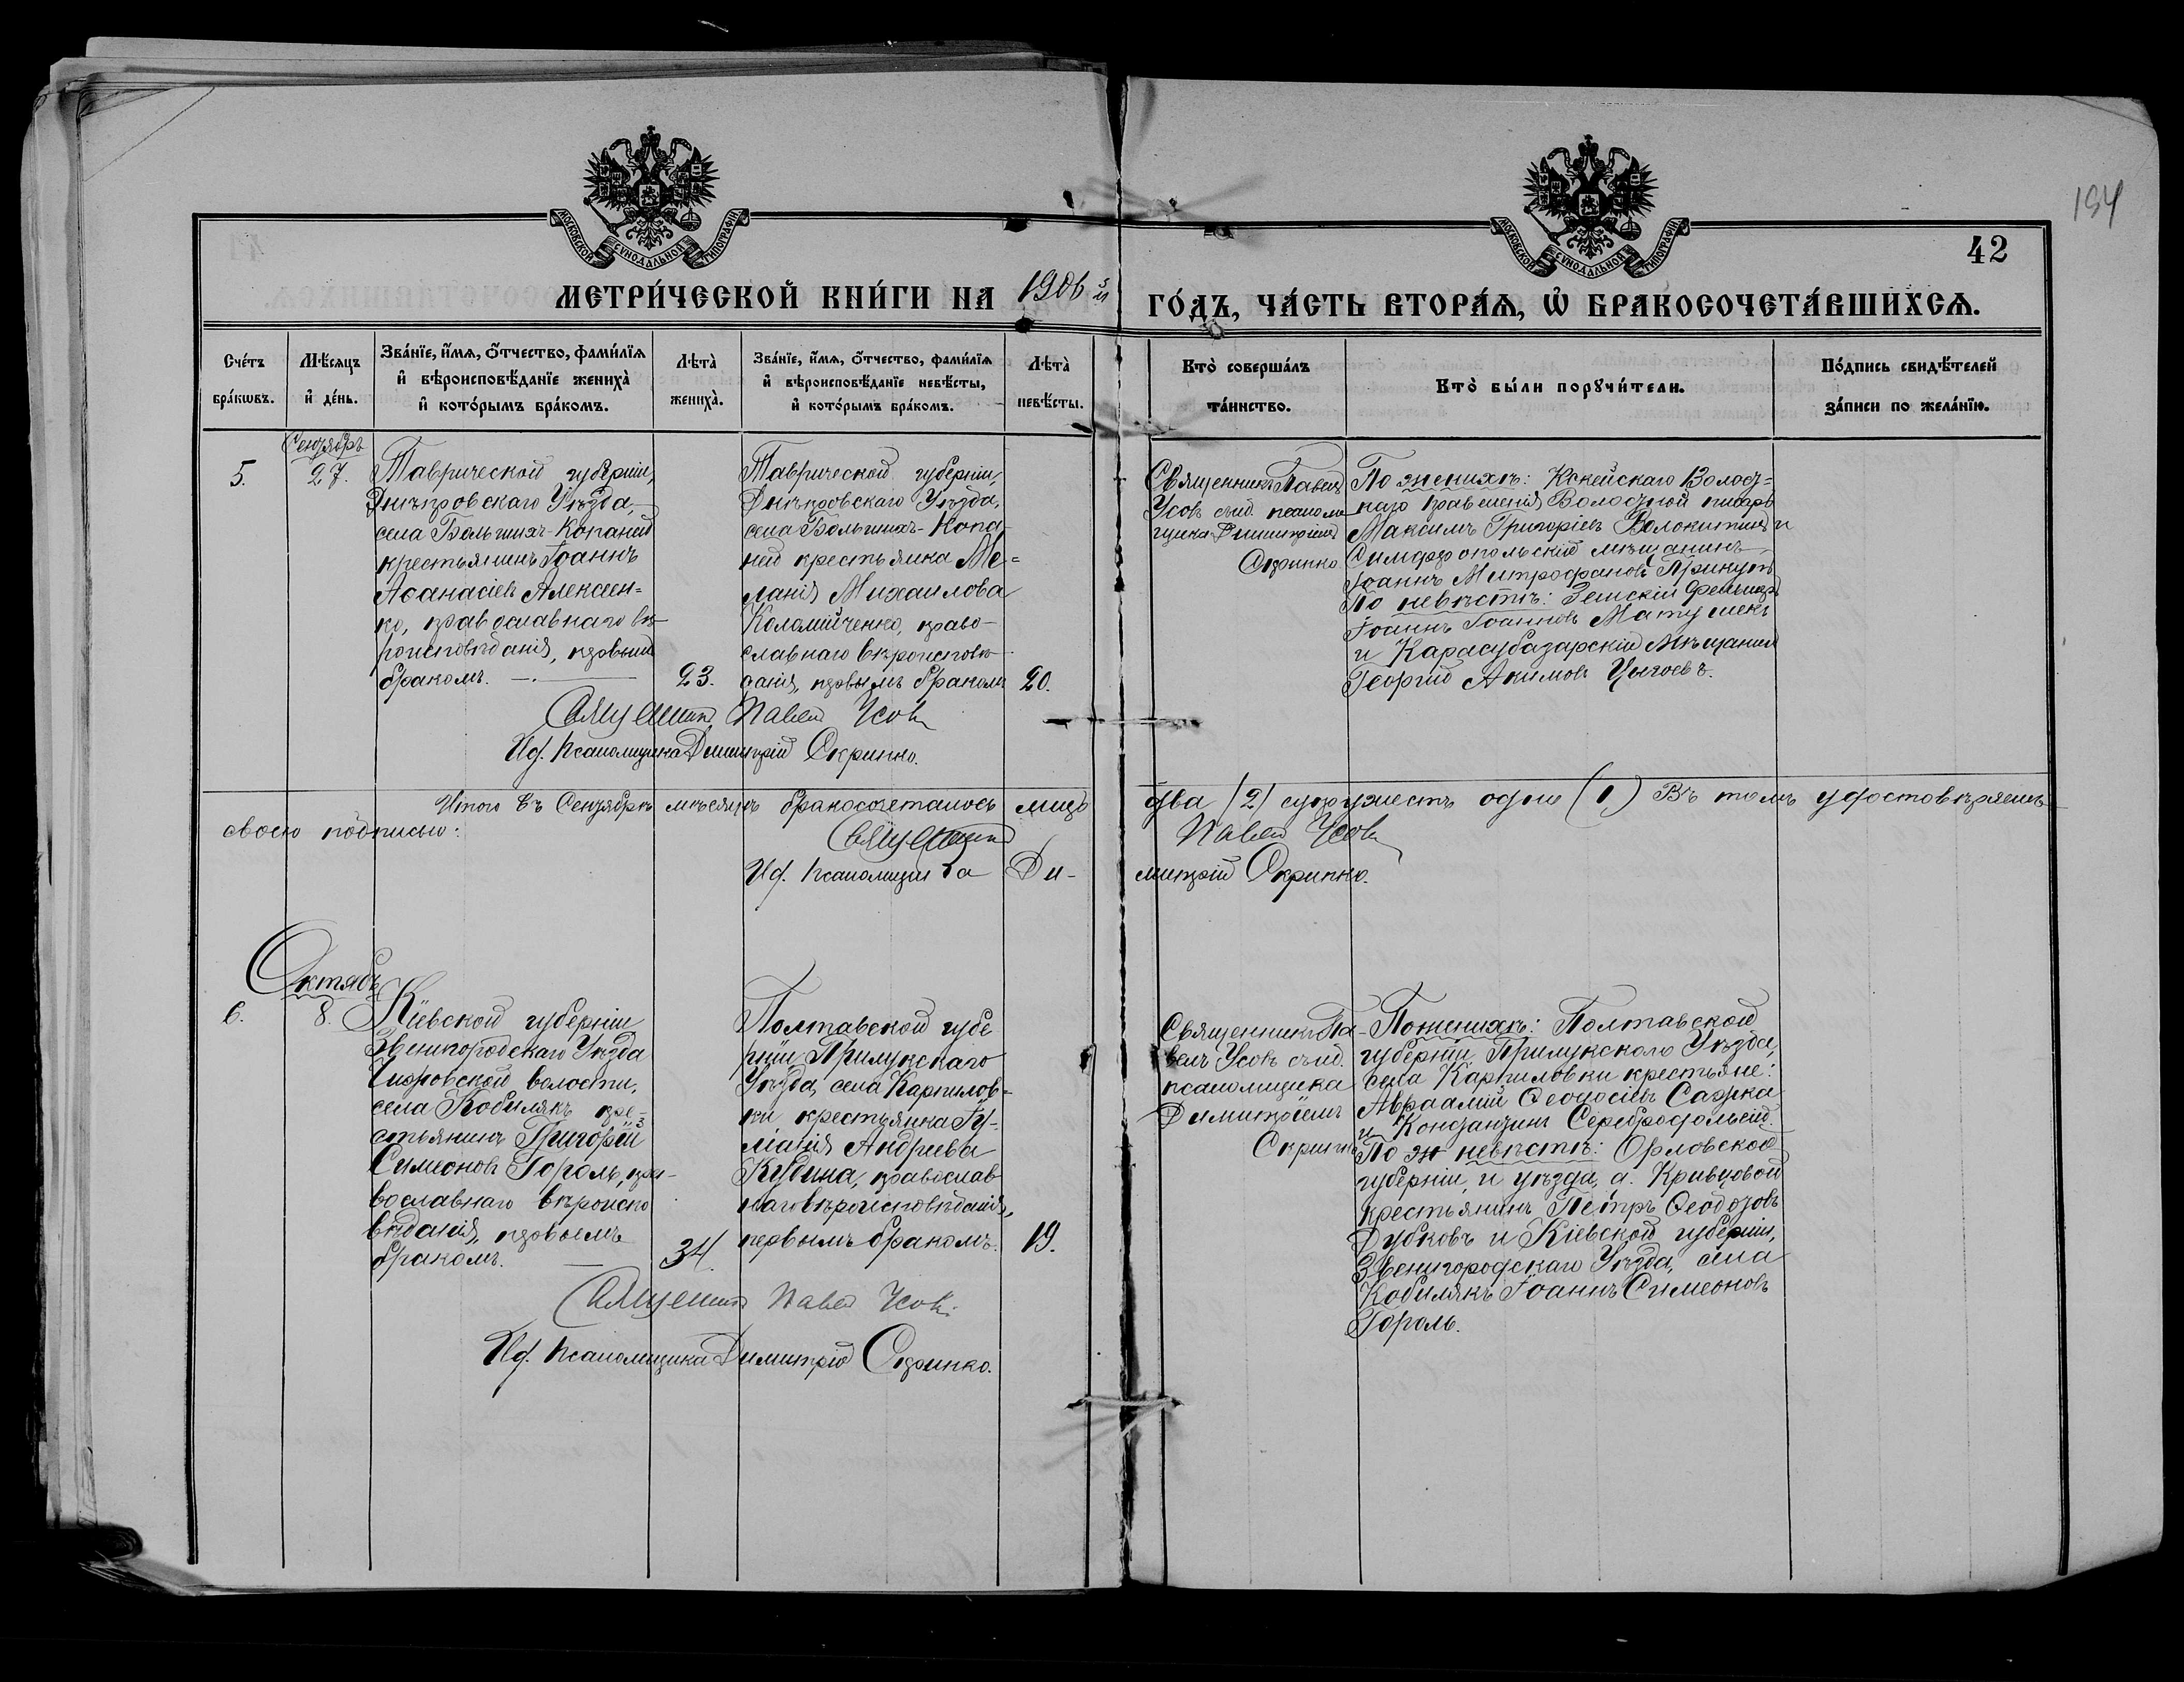 МОСКОВСКОЙ СУНОДАЛЬНОЙ ТИПОГРАФІИ
МОСКОВСКОЙ СУНОДАЛЬНОЙ ТИПОГРАФІИ
194
42
МЕТРИ́ЧЕСКОЙ КНИ́ГИ НА 1906 й ГО́ДЪ, ЧА́СТЬ ВТОРА́Я, Ѡ БРАКОСОЧЕТА́ВШИХСЯ.
Сче́тъ бра́кѡвъ.
Мѣ́сяцъ и де́нь.
Зва́нїе, и́мя, ѻ́тчество, фами́лїя и вѣроисповѣ́данїе жениха̀ и кото́рымъ бра́комъ.
Лѣта̀ жениха̀.
Зва́нїе, и́мя, ѻ́тчество, фами́лїя и вѣроисповѣ́данїе невѣ́сты, и кото́рымъ бра́комъ.
Лѣта̀ невѣ́сты.
Кто̀ соверша́лъ та́инство.
Кто̀ бы́ли порꙋчи́тели.
По́дпись свидѣ́телей за́писи по жела́нїю.
Сентябрь
5.
27.
Таврической губерніи,
Днѣпровскаго Уѣзда,
села Большихъ-Копаней
крестьянинъ Іоаннъ
Аѳанасіевъ Алексеен-
ко, православнаго вѣ-
роисповѣданія, первымъ
бракомъ.
23.
Таврической губерніи,
Днѣпровскаго Уѣзда,
села Большихъ-Копа-
ней крестьянка Ме-
ланія Михаилова
Коломійченко, право-
славнаго вѣроисповѣ-
данія, первымъ бракомъ
20.
Священникъ Павелъ
Усовъ съ и.д. псалом-
щика Димитріемъ
Скрипко
По женихѣ: Кокейскаго Волост-
наго правленія Волостной писарь
Максимъ Григоріевъ Волокитинъ и
Симферопольскій мѣщанинъ
Іоаннъ Митрофановъ
По невѣстѣ: Земскій фельдшеръ
Іоаннъ Іоанновъ Матушекъ
и Карасубазарскій мѣщанинъ
Георгій Акимовъ
Священникъ Павелъ Усовъ
И.д. псаломщика Димитрій Скрипко.
Итого въ Сентябрѣ мѣсяцѣ бракосочеталось лицъ два (2) супружествъ одно (1) Въ томъ удостовѣряемъ
своею подписью:
Священникъ Павелъ Усовъ
И.д. псаломщика Димитрій Скрипко.
Октябрь
6.
8.
Кіевской губерніи
Звенигородскаго Уѣзда
волости,
села Кобилякъ кре-
стьянинъ Григорій
Симеоновъ Гороль, пра-
вославнаго вѣроиспо
вѣданія, первымъ
бракомъ.
34.
Полтавской губе
рніи, Прилукскаго
Уѣзда, села Карпилов-
ки крестьянка Іу-
ліанія Андреева
Кубина, православ
наго вѣроисповѣданія,
первымъ бракомъ.
19.
Священникъ Па-
велъ Усовъ съ и.д.
псаломщика
Димитріемъ
Скрипко
По женихѣ: Полтавской
губерніи, Прилукскаго Уѣзда,
села Карпиловки крестьяне:
Авраамій Ѳеодосіевъ Сажка
и
По невѣстѣ: Орловской
губерніи, и уѣзда, д. Кривцовой
крестьянинъ Петръ Ѳеодоровъ
Дубковъ и Кіевской губерніи,
Звенигородскаго Уѣзда, села
Кобилякъ Іоаннъ Симеоновъ
Гороль.
Священникъ Павелъ Усовъ.
И.д. псаломщика Димитрій Скрипко.